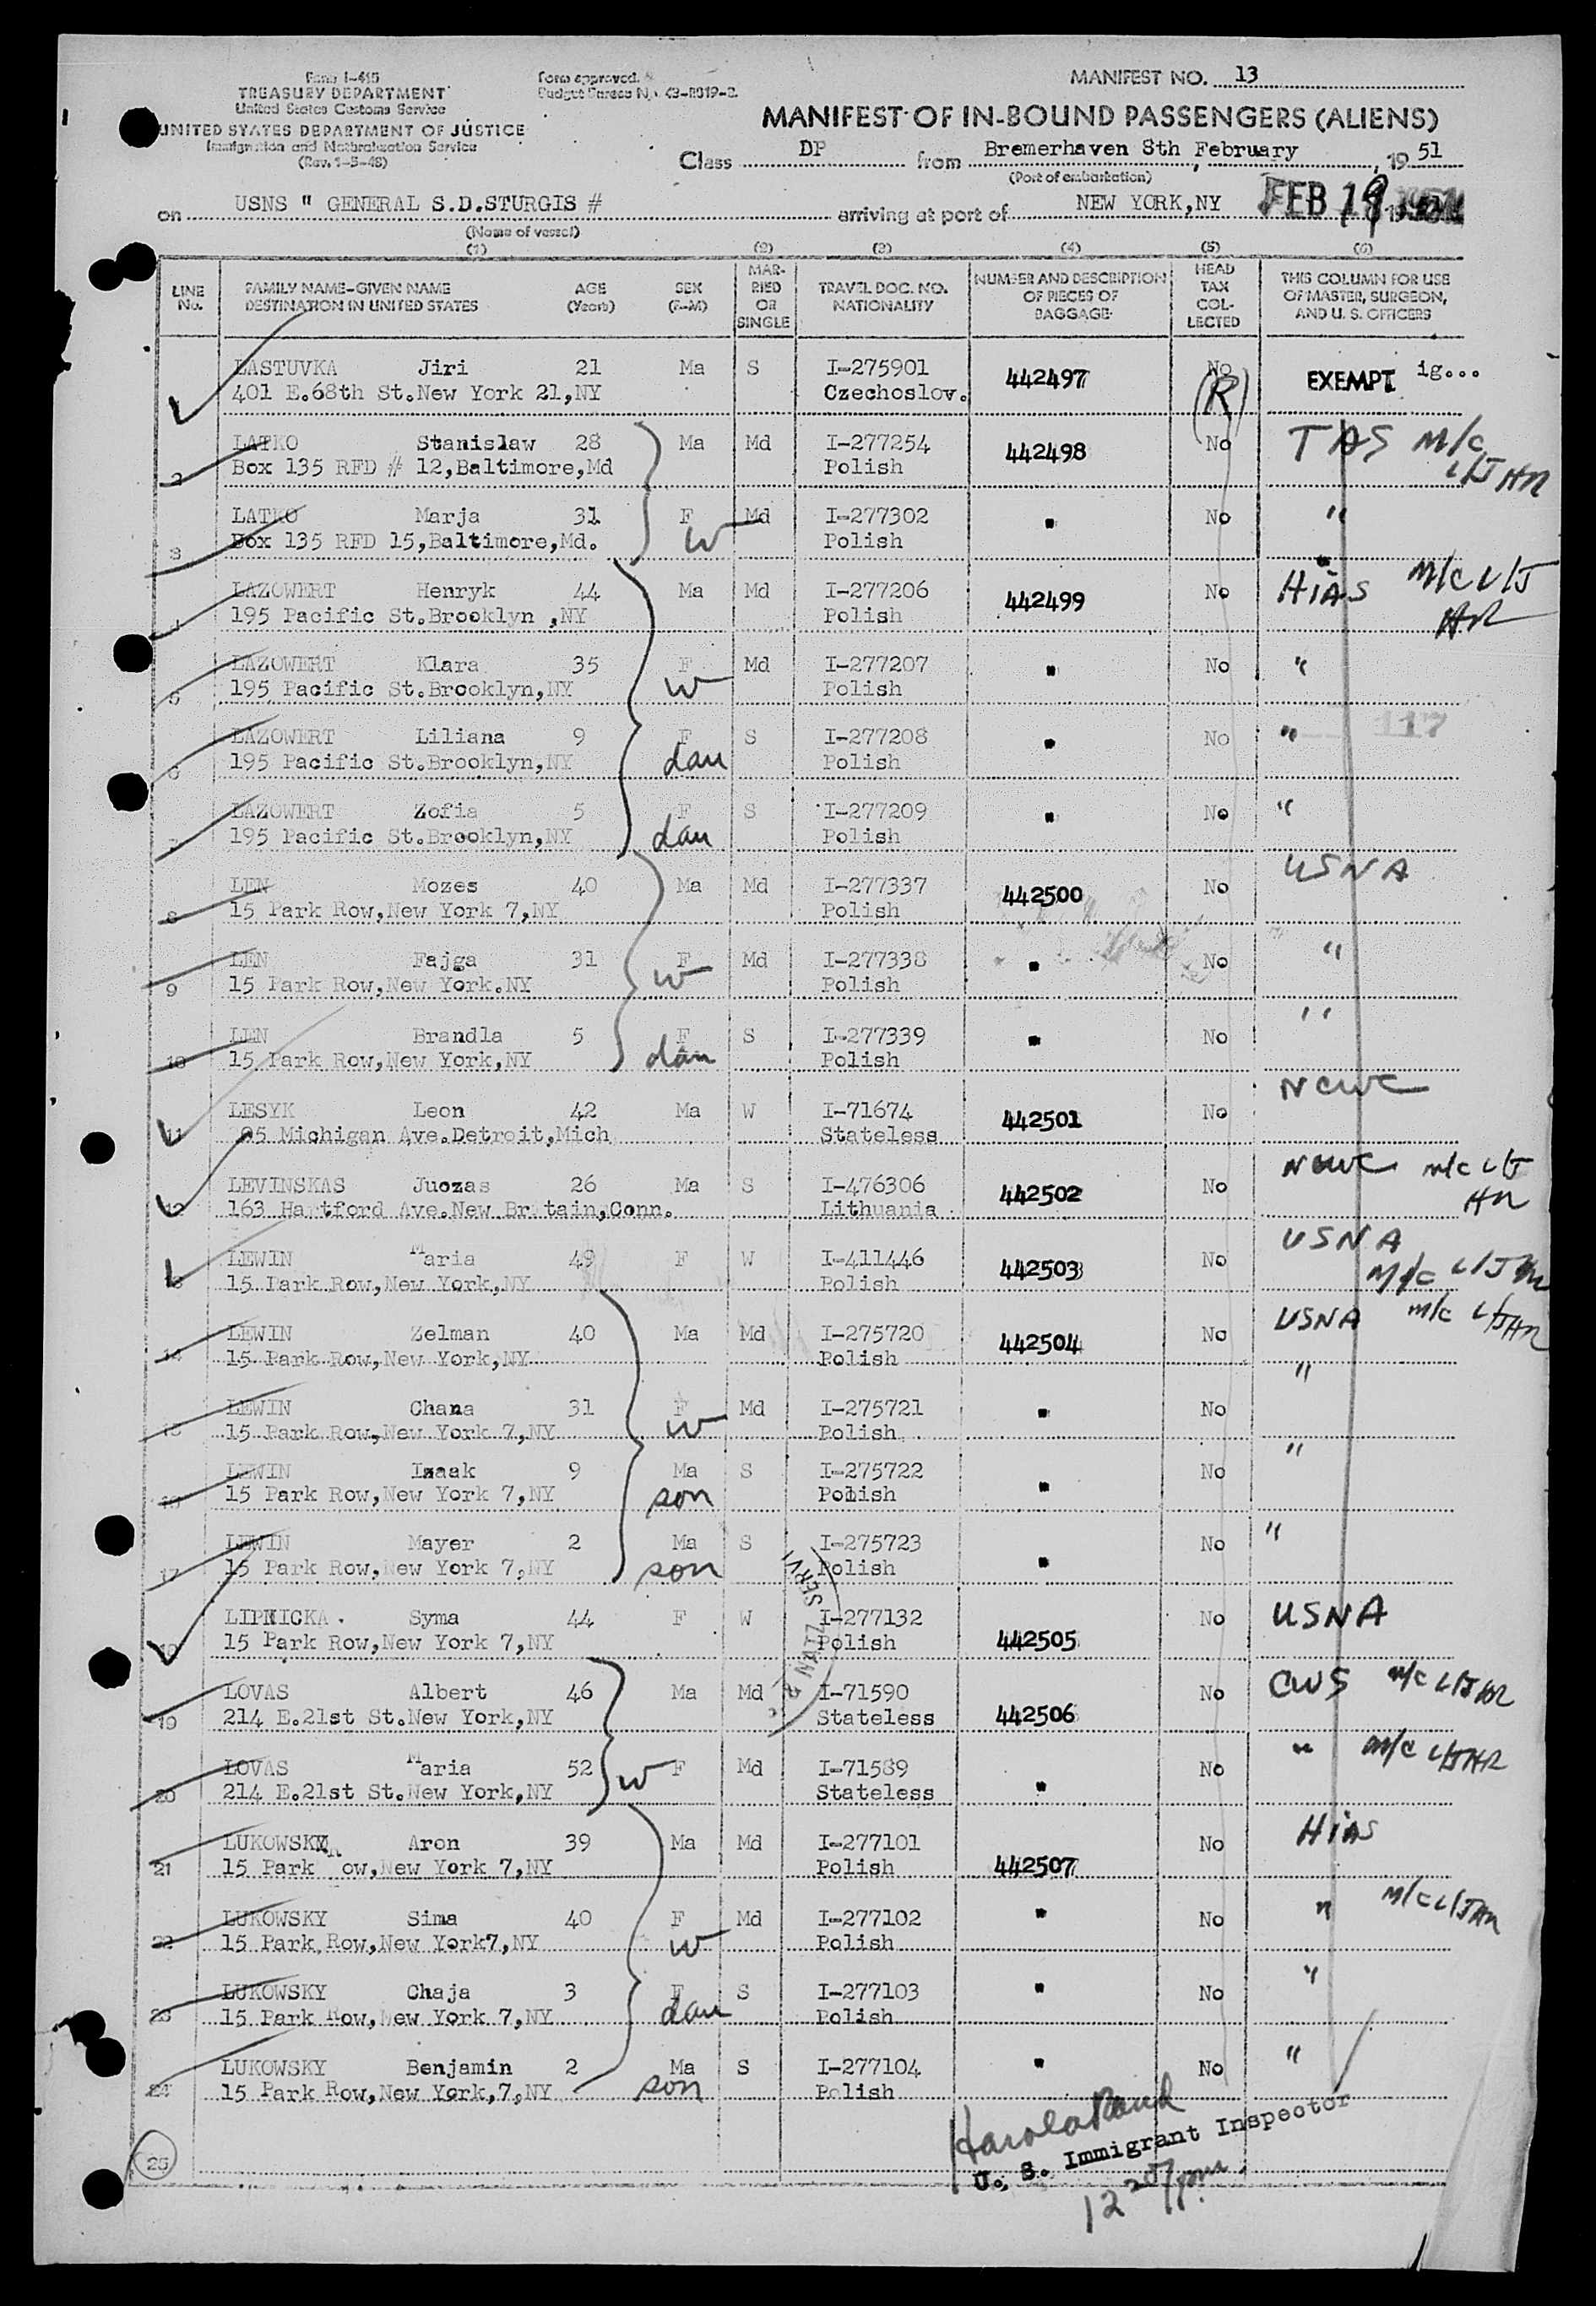 Form I-415
TREASURY DEPARTMENT
United States Customs Service
UNITED STATES DEPARTMENT OF JUSTICE
Immigration and Naturalization Service
(Rev. 1-5-48)
Form approved.
Budget Bureau No. 43-R019-2.
MANIFEST NO. 13
MANIFEST OF IN-BOUND PASSENGERS (ALIENS)
Class DP from Bremerhaven 8th February, 19 51
(Port of embarkation)
on USNS " GENERAL S.D.STURGIS # arriving at port of NEW YORK,NY FEB 19 1951
(Name of vessel)
(1) (2) (3) (4) (5) (6)
LINE No. FAMILY NAME-GIVEN NAME DESTINATION IN UNITED STATES AGE (Years) SEX (F-M) MARRIED OR SINGLE TRAVEL DOC. NO. NATIONALITY NUMBER AND DESCRIPTION OF PIECES OF BAGGAGE HEAD TAX COLLECTED THIS COLUMN FOR USE OF MASTER, SURGEON, AND U. S. OFFICERS
LASTUVKA Jiri 21 Ma S I-275901 442497 No (R) EXEMPT ig...
401 E.68th St.New York 21,NY Czechoslov.
2 LATKO Stanislaw 28 Ma Md I-277254 442498 No TAS M/c L/J HR
Box 135 RFD # 12,Baltimore,Md Polish
3 LATKO Marja 31 F w Md I-277302 " No "
Box 135 RFD 15,Baltimore,Md. Polish
4 LAZOWERT Henryk 44 Ma Md I-277206 442499 No HiAS M/c L/J HR
195 Pacific St.Brooklyn ,NY Polish
5 LAZOWERT Klara 35 F w Md I-277207 " No "
195 Pacific St.Brooklyn,NY Polish
6 LAZOWERT Liliana 9 F dau S I-277208 " No " 117
195 Pacific St.Brooklyn,NY Polish
7 LAZOWERT Zofia 5 F dau S I-277209 " No "
195 Pacific St.Brooklyn,NY Polish
8 LEN Mozes 40 Ma Md I-277337 442500 No USNA
15 Park Row,New York 7,NY Polish
9 LEN Fajga 31 F w Md I-277338 " No "
15 Park Row,New York.NY Polish
10 LEN Brandla 5 F dau S I-277339 " No "
15 Park Row,New York,NY Polish
11 LESYK Leon 42 Ma W I-71674 442501 No NCWC
95 Michigan Ave.Detroit,Mich Stateless
12 LEVINSKAS Juozas 26 Ma S I-476306 442502 No NCWC M/c L/J HR
163 Hartford Ave.New Br tain,Conn. Lithuania
13 LEWIN Maria 49 F W I-411446 442503 No USNA M/c L/J HR
15 Park Row,New York,NY Polish
14 LEWIN Zelman 40 Ma Md I-275720 442504 No USNA M/c L/J HR
15 Park Row,New York,NY Polish
15 LEWIN Chana 31 F w Md I-275721 " No "
15 Park Row,New York 7,NY Polish
16 LEWIN Izaak 9 Ma son S I-275722 " No "
15 Park Row,New York 7,NY Polish
17 LEWIN Mayer 2 Ma son S I-275723 " No "
15 Park Row,New York 7,NY Polish
& NATZ SERVI
LIPNICKA. Syma 44 F W I-277132 442505 No USNA
15 Park Row,New York 7,NY Polish
19 LOVAS Albert 46 Ma Md I-71590 442506 No CWS M/c L/J HR
214 E.21st St.New York,NY Stateless
20 LOVAS Maria 52 w F Md I-71589 " No " M/c L/J HR
214 E.21st St.New York,NY Stateless
21 LUKOWSKY Aron 39 Ma Md I-277101 442507 No HiAS
15 Park Row,New York 7,NY Polish
22 LUKOWSKY Sima 40 F w Md I-277102 " No " M/c L/J HR
15 Park Row,New York7,NY Polish
23 LUKOWSKY Chaja 3 F dau S I-277103 " No "
15 Park Row,New York 7,NY Polish
24 LUKOWSKY Benjamin 2 Ma son S I-277104 " No "
15 Park Row,New York,7,NY Polish
25
U. S. Immigrant Inspector